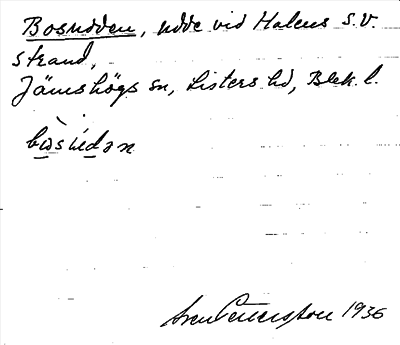 Bosudden, udde vid Halens s.v.
strand,
Jämshögs sn, Listers hd, Blek. l.
bωsùdən
Sven Petersson 1936